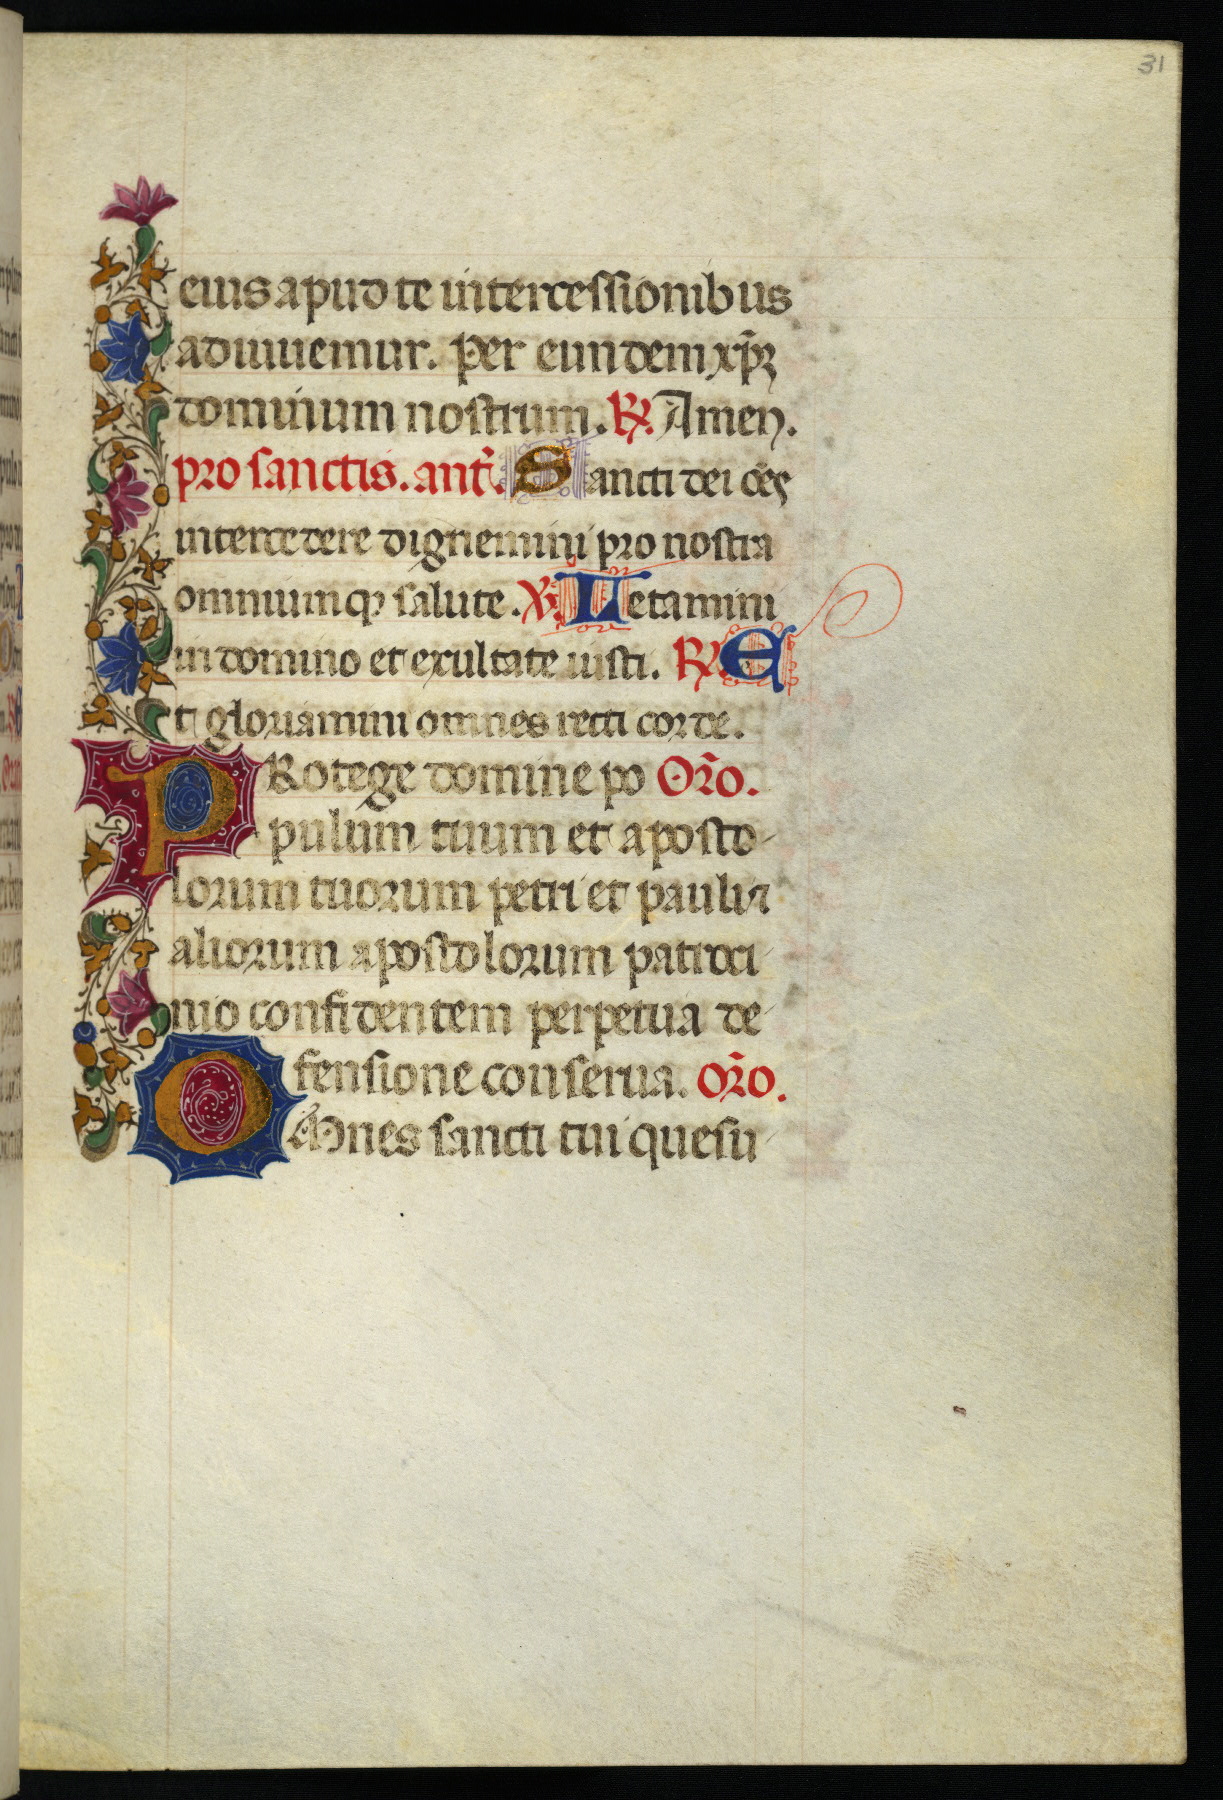 31
eius apud te intercessionibus
adiuuemur. per eundem xp̄ꝫ
dominum nostrum. ℟. Amen.
pro sanctis. ant̄. Sancti dei oēs
intercedere dignemini pro nostra
omniumqꝫ salute. ℣. Letamini
in domino et exultate iusti. ℟. E
t gloriamini omnes recti corde.
PRotege domine po Or̄o.
pulum tuum et aposto-
lorum tuorum petri et pauli ⁊
aliorum apostolorum patroci-
nio confidentem perpetua de-
fensione conserua. Or̄o.
OMnes sancti tui quesu-